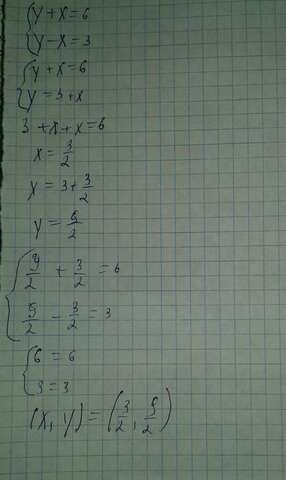 {y + x = 6
{y - x = 3
{y + x = 6
{y = 3 + x
3 + x + x = 6
x = 3/2
y = 3 + 3/2
y = 9/2
{9/2 + 3/2 = 6
{9/2 - 3/2 = 3
{6 = 6
{3 = 3
(x, y) = (3/2, 9/2)